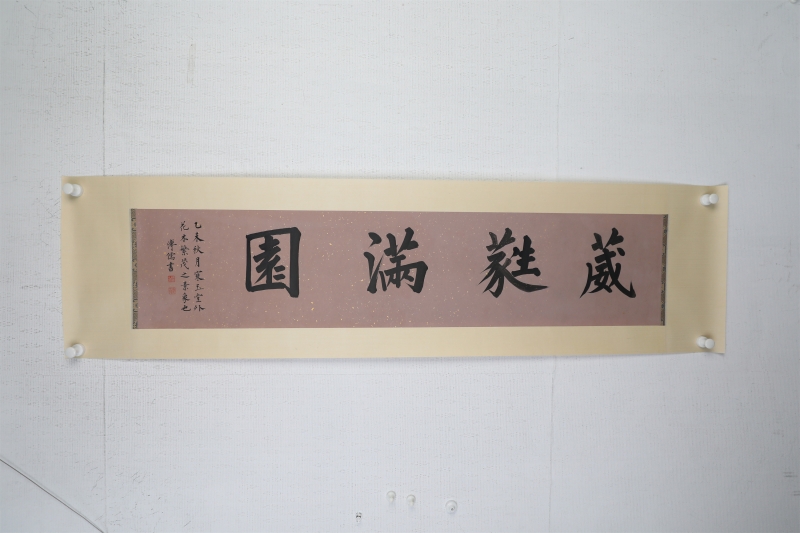 葳蕤滿園
乙未秋月寒玉堂外
花木繁茂之景象也
溥儒書